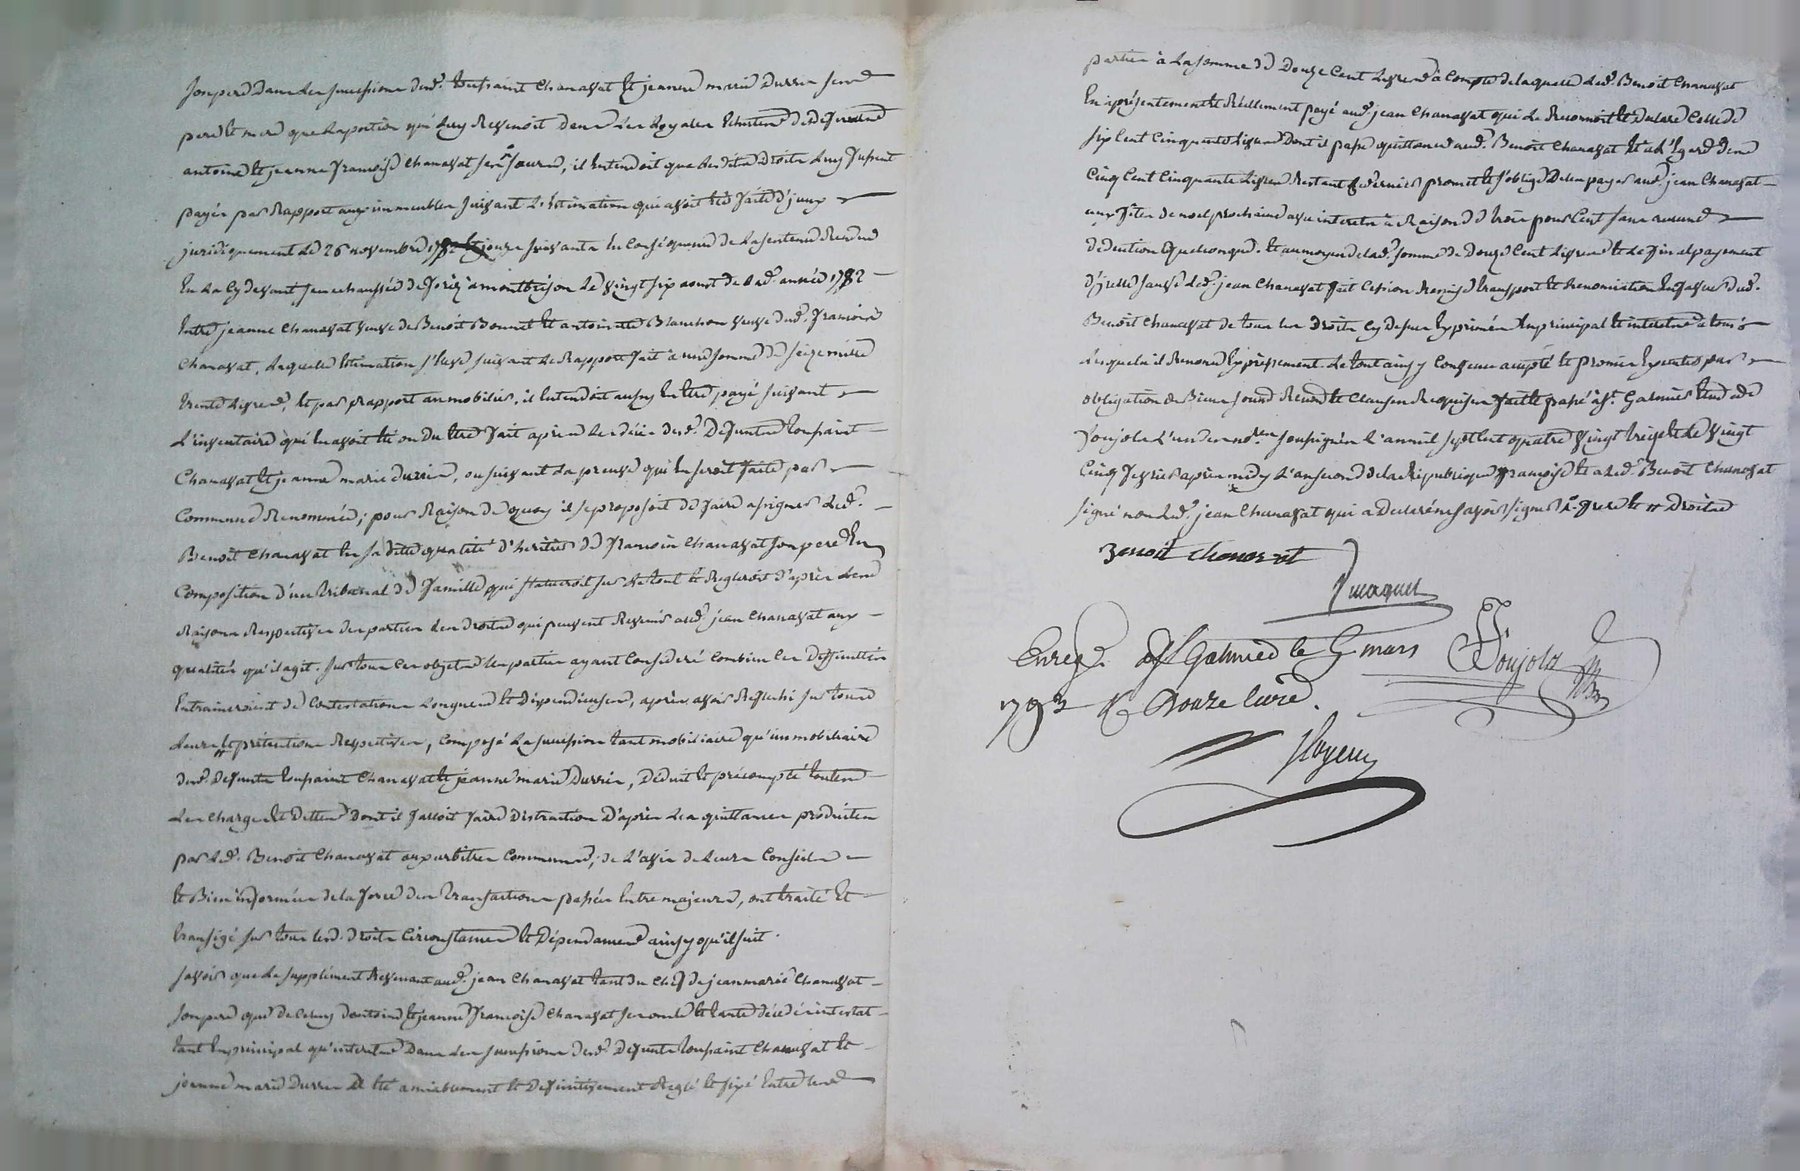 son pere dans les successions desd. toussaint Chanavat et jeanne marie Durris ses
pere et mere que la portion qui luy Revenoit dans les loyales échutes desdefuntes
antoine et jeanne françoise Chanavat ses , il entendoit que lesdits droits luy fussent
payés par Rapport aux immeubles suivant l'estimation qui avoit été faite d'jceux
juridiquement le 26 novembre jours suivants en conséquence de la sentence Rendue
En la cy devant senechaussée de forez a montbrison le vingt six aoust de lad. année 1782
Entre jeanne Chanavat veuve de Benoit Bonnet et antoinette Blanchon veuve dud. françois
Chanavat, laquelle estimation s'leve suivant le Rapport fait à une somme de seize mille
trente livres, et par rapport au mobilier, il entendoit aussy en être payé suivant
L'inventaire qui en avoit été ou du être fait après le décès desd. Defunts toussaint
Chanavat et jeanne marie durris, ou suivant la preuve qui en seroit faite par
Commune Renommée; pour Raison de quoy il se proposoit de faire assigner led.
Benoit Chanavat en sa ditte qualité d'héritier de françois Chanavat son pere En
Composition d'un tribunal de famille qui statueroit sur le tout et Regleroit d'après les
Raisons Respectives des parties les droits qui peuvent Revenir aud. jean Chanavat aux
qualités qu'il agit. sur tous ces objets les parties ayant Consideré Combien ces difficultés
Entraineroient de Contestations Longues et dispendieuses, après avoir Reflechi sur toutes
leurs prétentions Respectives, Composé La succession tant mobiliaire qu'immobiliaire
desd. Defunts toussaint Chanavat et jeanne marie Durris, Déduit et précompté toutes
Les charges et dettes dont il falloit faire distraction d'après les quittances produites
par led. Benoit Chanavat aux arbitres Communs; de l'avis de leurs Conseils
et Bien informés de la force des transactions passées Entre majeurs, ont traité et
transigé sur tous lesd. droits Circonstances et dépendances ainsy qu'il suit.
savoir que le supplément Revenant aud. jean Chanavat tant du chef de jean marie Chanavat
son pere que de Celuy d'antoine et jeanne françoise Chanavat ses oncle et tante décédés intestat
tant En principal qu'interets dans les successions desd. defunts toussaint Chanavat et
jeanne marie Durris a été amiablement et definitivement Reglé et fixé Entre les
parties à la somme de Douze Cent Livres à Compte de laquelle led. Benoit Chanavat
En a présentement et Réellement payé aud. jean Chanavat qui le Reconnoit et declare Celle de
six Cent Cinquante livres dont il passe quittance aud. Benoit Chanavat et à l'Egard des
Cinq Cent Cinquante livres Restant Ce dernier promet et s'oblige de les payer aud. jean Chanavat
aux fêtes de noel prochaines avec interets à Raison de trois pour Cent sans aucune
déduction quelconque. et au moyen de lad. somme de Douze Cent livres et le final payement
d'jcelle sauf led. jean Chanavat fait Cession Remise transport et Renonciation En faveur dud.
Benoit Chanavat de tous les droits Cy dessus Exprimés En principal et interets à tous
lesquels il Renonce Expressement. Le tout ainsy Convenu accepté et promis Executer par
obligation de Biens soumis Renonc et Clauses Requises fait et passé à st. Galmier Etude de
Poujolz L'un des no.res soussignés L'an mil sept Cent quatre vingt treize et le vingt
Cinq fevrier après midy L'an second de la Republique françoise et a led. Benoit Chanavat
signé non led. jean Chanavat qui a declaré ne savoir signer de ce Enquis et Droitué
Benoit Chanavat

Enreg. à St Galmier le 6 mars
1793 R. Douze livres.
Poujolz